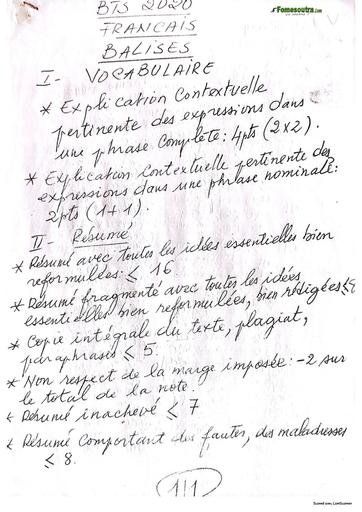 BTS 2020
Fomesoutra.com
FRANCAIS
BALISES
I- VOCABULAIRE
* Explication Contextuelle
pertinente des expressions dans
une phrase complète: 4pts (2x2).
* Explication contextuelle pertinente des
expressions dans une phrase nominale:
2pts (1+1).
II- Résumé
* Résumé avec toutes les idées essentielles bien
reformulées: ≤ 16
* Résumé fragmenté avec toutes les idées
essentielles bien reformulées, bien rédigées ≤
* Copie intégrale du texte, plagiat,
paraphrase ≤ 5.
* Non respect de la marge imposée: -2 sur
le total de la note.
* Résumé inachevé ≤ 7
* Résumé Comportant des fautes, des maladresses
≤ 8.
1/1
Scanned with CamScanner